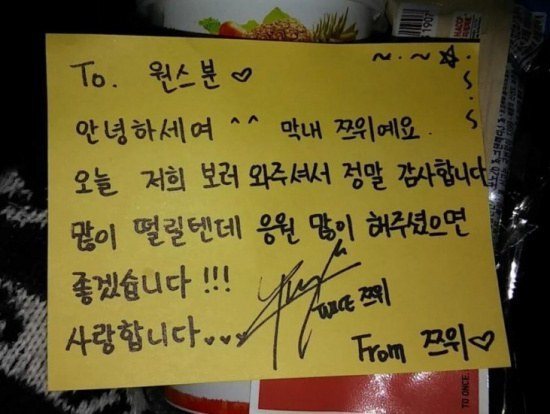 To. 원스분♡
안녕하세여 ^^ 막내 쯔위예요.
오늘 저희 보러 와주셔서 정말 감사합니다
많이 떨릴텐데 응원 많이 해주셨으면
좋겠습니다!!!
사랑합니다...
TWICE 쯔위
From 쯔위♡